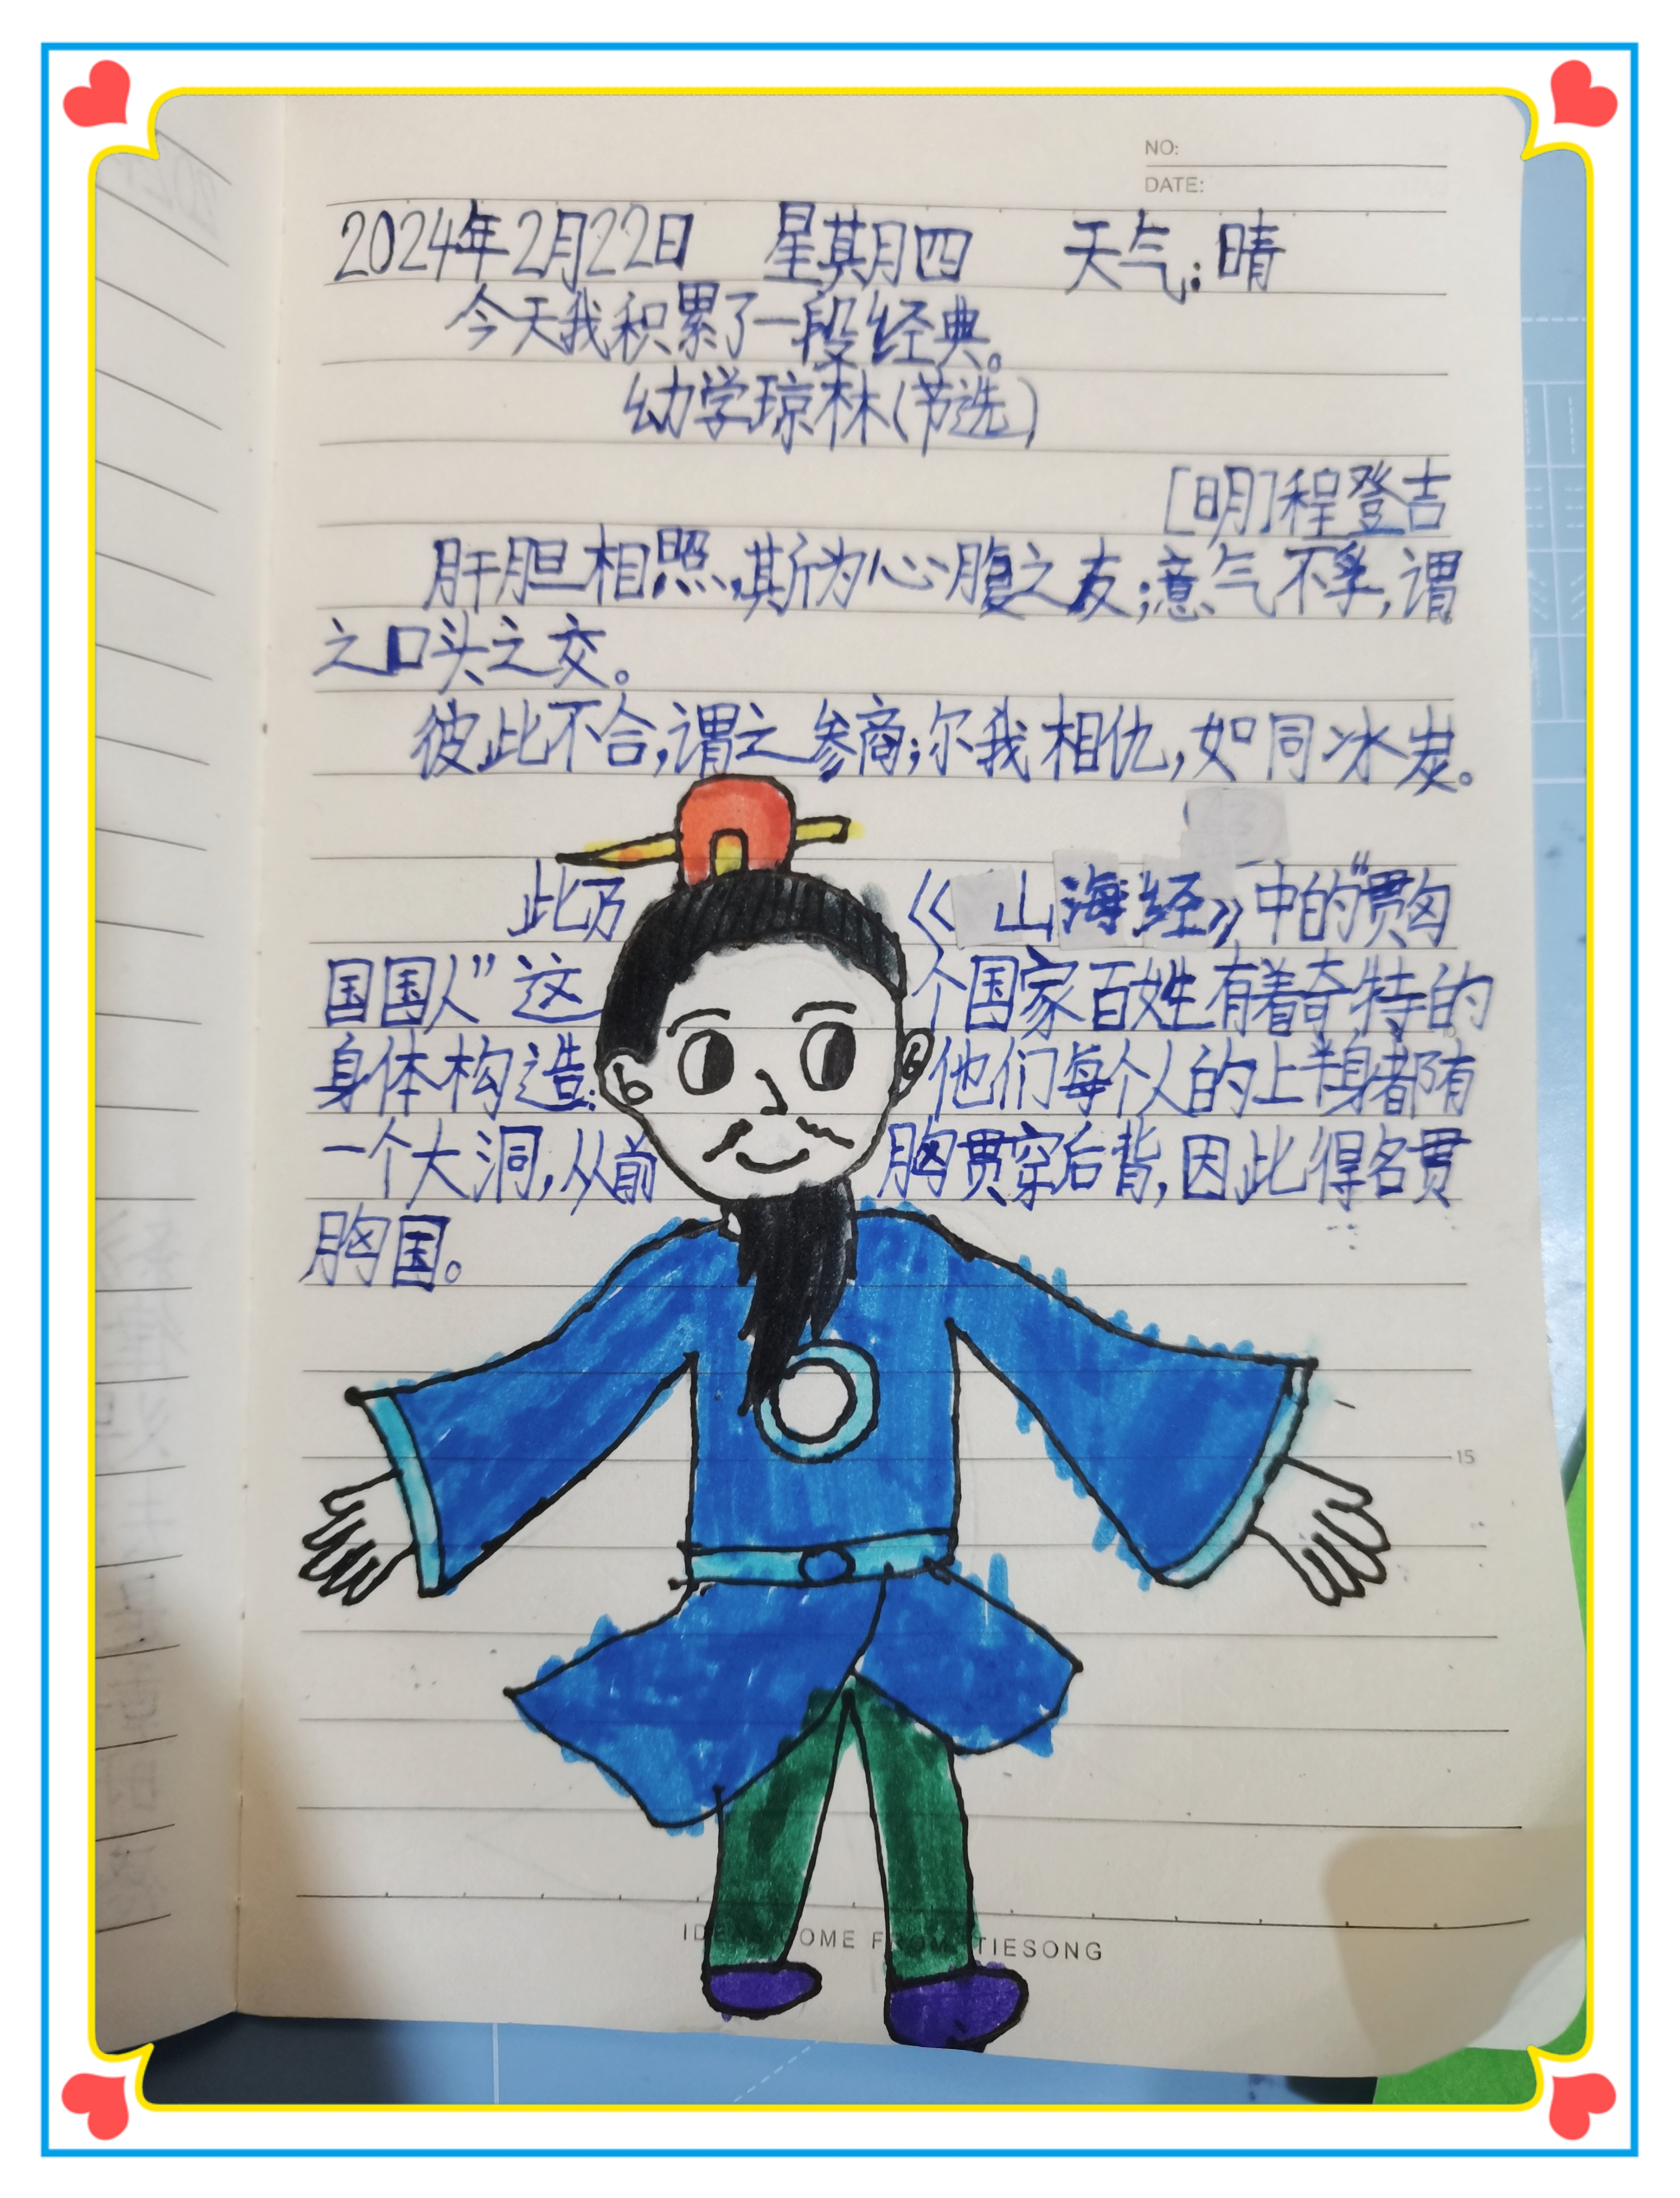 NO:
DATE:
2024年2月22日 星期四 天气:晴
今天我积累了一段经典。
幼学琼林(节选)
[明]程登吉
肝胆相照,斯为心腹之友;意气不孚,谓
之口头之交。
彼此不合,谓之参商;尔我相仇,如同冰炭。
此乃《山海经》中的“贯匈
国国人”这个国家百姓有着奇特的
身体构造:他们每个人的上半身都有
一个大洞,从前胸贯穿后背,因此得名贯
胸国。
15
OME FROM TIESONG